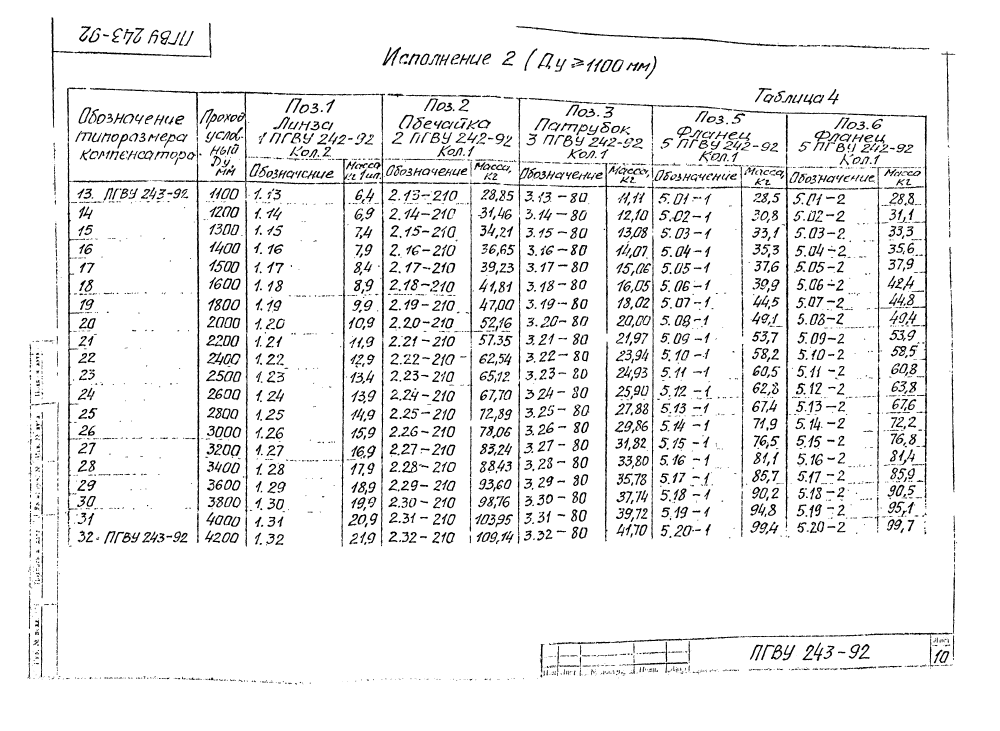 ПГВУ 243-92
Исполнение 2 (Ду ≥ 1100 мм)
Таблица 4
Обозначение типоразмера компенсатора
Проход условный Ду, мм
Поз.1 Линза 1 ПГВУ 242-92 Кол.2
Поз.2 Обечайка 2 ПГВУ 242-92 Кол.1
Поз.3 Патрубок 3 ПГВУ 242-92 Кол.1
Поз.5 Фланец 5 ПГВУ 242-92 Кол.1
Поз.6 Фланец 5 ПГВУ 242-92 Кол.1
Обозначение Масса кг 1шт. Обозначение Масса, кг Обозначение Масса, кг Обозначение Масса, кг Обозначение Масса кг
13 ПГВУ 243-92 1100 1.13 6,4 2.13-210 28,85 3.13-80 11,11 5.01-1 28,5 5.01-2 28,8
14 1200 1.14 6,9 2.14-210 31,46 3.14-80 12,10 5.02-1 30,8 5.02-2 31,1
15 1300 1.15 7,4 2.15-210 34,21 3.15-80 13,08 5.03-1 33,1 5.03-2 33,3
16 1400 1.16 7,9 2.16-210 36,65 3.16-80 14,07 5.04-1 35,3 5.04-2 35,6
17 1500 1.17 8,4 2.17-210 39,23 3.17-80 15,06 5.05-1 37,6 5.05-2 37,9
18 1600 1.18 8,9 2.18-210 41,81 3.18-80 16,05 5.06-1 39,9 5.06-2 42,4
19 1800 1.19 9,9 2.19-210 47,00 3.19-80 18,02 5.07-1 44,5 5.07-2 44,8
20 2000 1.20 10,9 2.20-210 52,16 3.20-80 20,00 5.08-1 49,1 5.08-2 49,4
21 2200 1.21 11,9 2.21-210 57.35 3.21-80 21,97 5.09-1 53,7 5.09-2 53,9
22 2400 1.22 12,9 2.22-210 62,54 3.22-80 23,94 5.10-1 58,2 5.10-2 58,5
23 2500 1.23 13,4 2.23-210 65,12 3.23-80 24,93 5.11-1 60,5 5.11-2 60,8
24 2600 1.24 13,9 2.24-210 67,70 3.24-80 25,90 5.12-1 62,8 5.12-2 63,8
25 2800 1.25 14,9 2.25-210 72,89 3.25-80 27,88 5.13-1 67,4 5.13-2 67,6
26 3000 1.26 15,9 2.26-210 78,06 3.26-80 29,86 5.14-1 71,9 5.14-2 72,2
27 3200 1.27 16,9 2.27-210 83,24 3.27-80 31,82 5.15-1 76,5 5.15-2 76,8
28 3400 1.28 17,9 2.28-210 88,43 3.28-80 33,80 5.16-1 81,1 5.16-2 81,4
29 3600 1.29 18,9 2.29-210 93,60 3.29-80 35,78 5.17-1 85,7 5.17-2 85,9
30 3800 1.30 19,9 2.30-210 98,76 3.30-80 37,74 5.18-1 90,2 5.18-2 90,5
31 4000 1.31 20,9 2.31-210 103,95 3.31-80 39,72 5.19-1 94,8 5.19-2 95,1
32. ПГВУ 243-92 4200 1.32 21,9 2.32-210 109,14 3.32-80 41,70 5.20-1 99,4 5.20-2 99,7
ПГВУ 243-92
Лист
10